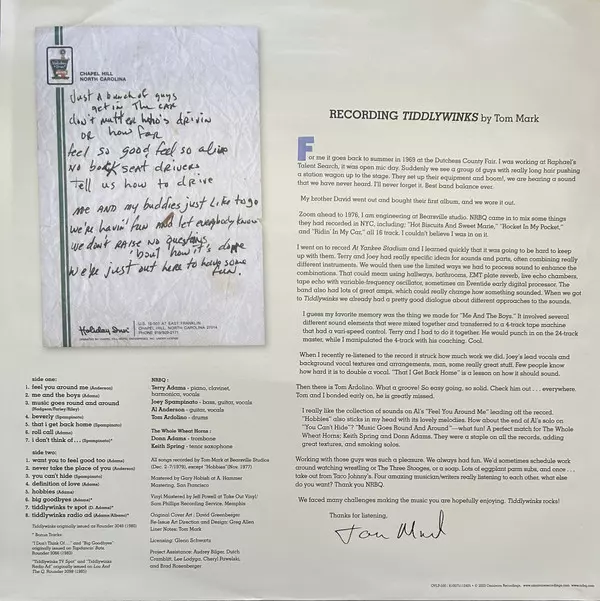 CHAPEL HILL
NORTH CAROLINA
Just a bunch of guys
get in the car
don't matter who's drivin
or how far
feel so good feel so alive
no back seat drivers
tell us how to drive
me and my buddies just like to go
we're havin' fun and let everybody know
we don't raise no questions
'bout how it's done
we're just out here to have some
fun.
Holiday Inn
U.S. 15-501 AT EAST FRANKLIN
CHAPEL HILL, NORTH CAROLINA 27514
side one:
1. feel you around me (Anderson)
2. me and the boys (Adams)
3. music goes round and around
(Hodgson/Farley/Riley)
4. beverly (Spampinato)
5. that i get back home (Spampinato)
6. roll call (Adams)
7. i don't think of... (Spampinato)*
side two:
1. want you to feel good too (Adams)
2. never take the place of you (Anderson)
3. you can't hide (Spampinato)
4. definition of love (Adams)
5. hobbies (Adams)
6. big goodbyes (Adams)*
7. tiddlywinks tv spot
8. tiddlywinks radio ad
Tiddlywinks originally issued as Rounder 3048 (1980)
* Bonus Tracks:
"I Don't Think Of..." and "Big Goodbyes"
originally issued on Tapdancin' Bats
Rounder 3066 (1983)
"Tiddlywinks TV Spot" and "Tiddlywinks
Radio Ad" originally issued on Lou And
The Q, Rounder 3098 (1985)
NRBQ :
Terry Adams - piano, clavinet,
harmonica, vocals
Joey Spampinato - bass, guitar, vocals
Al Anderson - guitar, vocals
Tom Ardolino - drums
The Whole Wheat Horns :
Donn Adams - trombone
Keith Spring - tenor saxophone
All songs recorded by Tom Mark at Bearsville Studios
(Dec. 2-7/1979), except "Hobbies" (Nov. 1977)
Mastered by Gary Hobish at A. Hammer
Mastering, San Francisco
Vinyl Mastered by Jeff Powell at Take Out Vinyl/
Sam Phillips Recording Service, Memphis
Original Cover Art : David Greenberger
Re-Issue Art Direction and Design: Greg Allen
Liner Notes: Tom Mark
Licensing: Glenn Schwartz
Project Assistance: Audrey Bilger, Dutch
Cramblitt, Lee Lodyga, Cheryl Pawelski,
and Brad Rosenberger
RECORDING TIDDLYWINKS by Tom Mark
For me it goes back to summer in 1969 at the Dutchess County Fair. I was working at Raphael's
Talent Search, it was open mic day. Suddenly we see a group of guys with really long hair pushing
a station wagon up to the stage. They set up their equipment and boom!, we are hearing a sound
that we have never heard. I'll never forget it. Best band balance ever.
My brother David went out and bought their first album, and we wore it out.
Zoom ahead to 1976, I am engineering at Bearsville studio. NRBQ came in to mix some things
they had recorded in NYC, including; "Hot Biscuits And Sweet Marie," "Rocket In My Pocket,"
and "Ridin' In My Car," all 16 track. I couldn't believe I was in on it.
I went on to record At Yankee Stadium and I learned quickly that it was going to be hard to keep
up with them. Terry and Joey had really specific ideas for sounds and parts, often combining really
different instruments. We would then use the limited ways we had to process sound to enhance the
combinations. That could mean using hallways, bathrooms, EMT plate reverb, live echo chambers,
tape echo with variable-frequency oscillator, sometimes an Eventide early digital processor. The
band also had lots of great amps, which could really change how something sounded. When we got
to Tiddlywinks we already had a pretty good dialogue about different approaches to the sounds.
I guess my favorite memory was the thing we made for "Me And The Boys." It involved several
different sound elements that were mixed together and transferred to a 4-track tape machine
that had a vari-speed control. Terry and I had to do it together. He would punch in on the 24-track
master, while I manipulated the 4-track with his coaching. Cool.
When I recently re-listened to the record it struck how much work we did. Joey's lead vocals and
background vocal textures and arrangements, man, some really great stuff. Few people know
how hard it is to double a vocal. "That I Get Back Home" is a lesson on how it should sound.
Then there is Tom Ardolino. What a groove! So easy going, so solid. Check him out . . . everywhere.
Tom and I bonded early on, he is greatly missed.
I really like the collection of sounds on Al's "Feel You Around Me" leading off the record.
"Hobbies" also sticks in my head with its lovely melodies. How about the end of Al's solo on
"You Can't Hide"? "Music Goes Round and Around"—what fun! A perfect match for The Whole
Wheat Horns: Keith Spring and Donn Adams. They were a staple on all the records, adding
great textures, and smoking solos.
Working with those guys was such a pleasure. We always had fun. We'd sometimes schedule work
around watching wrestling or The Three Stooges, or a soap. Lots of eggplant parm subs, and once . . .
take out from Taco Johnny's. Four amazing musician/writers really listening to each other, what else
do you want? Thank you NRBQ.
We faced many challenges making the music you are hopefully enjoying. Tiddlywinks rocks!
Thanks for listening,
Tom Mark